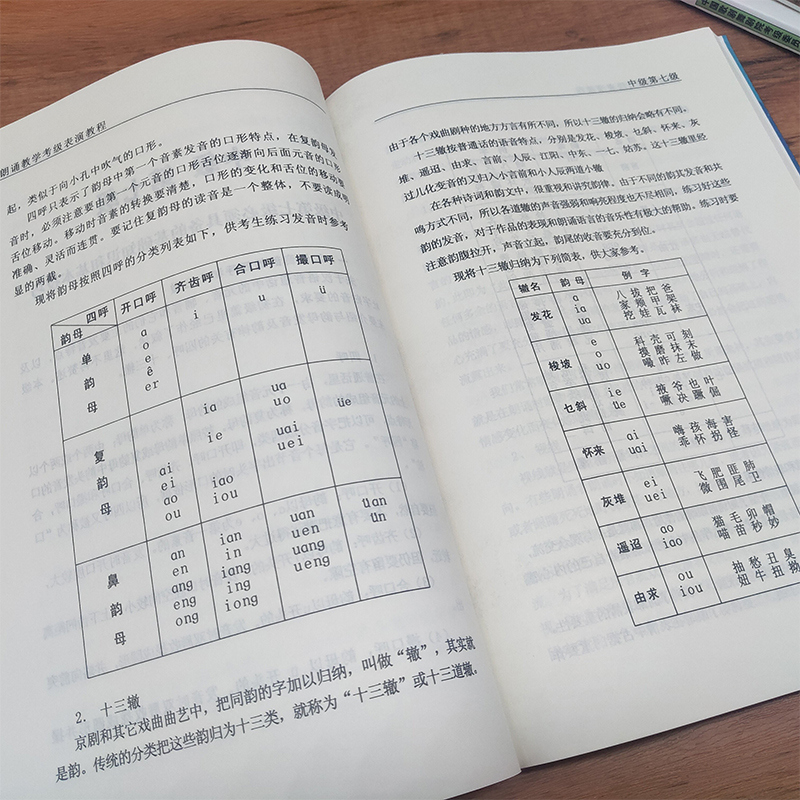 朗诵教学考级表演教程
起，类似于向小孔中吹气的口形。
四呼只表示了韵母中第一个音素发音的口形特点，在复韵母发
音时，必须注意要由第一个元音的口形舌位逐渐向后面元音的口形
舌位移动。移动时音素的转换要清楚，口形的变化和舌位的移动要
准确、灵活而连贯。要记住复韵母的读音是一个整体，不要读成明
显的两截。
现将韵母按照四呼的分类列表如下，供考生练习发音时参考
四呼 开口呼 齐齿呼 合口呼 撮口呼
韵母
单韵母
a i u ü
o
e
ê
er
复韵母
ia ua üe
ie uo
ai uai
ei uei
ao iao
ou iou
鼻韵母
an ian uan üan
en in uen ün
ang iang uang
eng ing ueng
ong iong
2. 十三辙
京剧和其它戏曲曲艺中，把同韵的字加以归纳，叫做“辙”，其实就
是韵。传统的分类把这些韵归为十三类，就称为“十三辙”或十三道辙。
中级第七级
由于各个戏曲剧种的地方方言有所不同，所以十三辙的归纳会略有不同。
十三辙按普通话的语音特点，分别是发花、梭坡、乜斜、怀来、灰
堆、遥迢、由求、言前、人辰、江阳、中东、一七、姑苏。这十三辙里经
过儿化变音的又归入小言前和小人辰两道小辙
在各种诗词和韵文中，很重视和讲究韵律。由于不同的韵其发音和共
鸣方式不同，所以各道辙的声音强弱和响亮程度也不尽相同，练习好这些
韵的发音，对于作品的表现和朗诵语言的音乐性有极大的帮助。练习时要
注意韵腹拉开，声音立起，韵尾的收音要充分到位。
现将十三辙归纳为下列简表，供大家参考。
辙名 韵母 例字
发花 a 八拔把爸
ia 家颊甲架
ua 挖娃瓦袜
梭坡 e 科壳可刻
o 摸磨抹末
uo 嘬昨左做
乜斜 ie 掖爷也叶
üe 噘决蹶倔
怀来 ai 嗨孩海害
uai 乖怀拐怪
灰堆 ei 飞肥匪肺
uei 微围尾卫
遥迢 ao 猫毛卯帽
iao 喵苗秒妙
由求 ou 抽愁丑臭
iou 妞牛扭拗